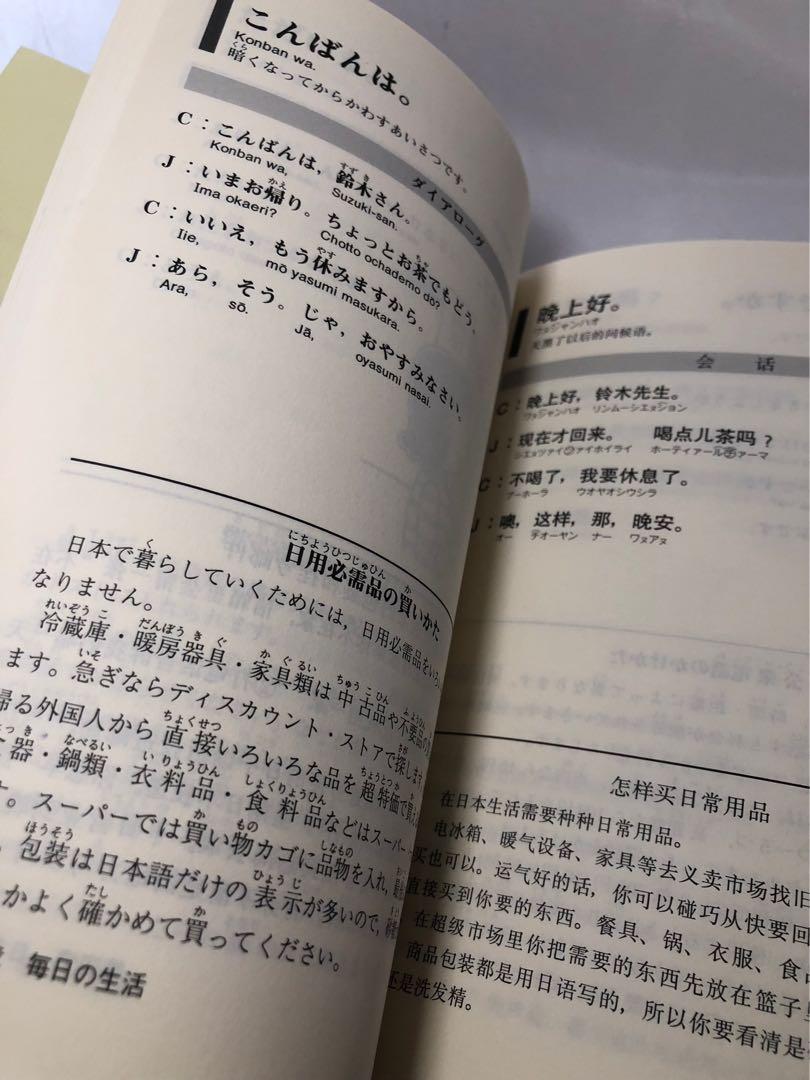 こんばんは。
Konban wa.
暗くなってからかわすあいさつです。
ダイアローグ
C：こんばんは，鈴木さん。
Konban wa, Suzuki-san.
J：いまお帰り。ちょっとお茶でもどう。
Ima okaeri? Chotto ochademo dō?
C：いいえ，もう休みますから。
Iie, mō yasumi masukara.
J：あら，そう。じゃ，おやすみなさい。
Ara, sō. Jā, oyasumi nasai.
日用必需品の買いかた
日本で暮らしていくためには，日用必需品をいろ
なりません。
冷蔵庫・暖房器具・家具類は中古品や不要品の
ます。急ぎならディスカウント・ストアで探します
帰る外国人から直接いろいろな品を超特価で買え
器・鍋類・衣料品・食料品などはスーパー
す。スーパーでは買い物カゴに品物を入れ，
包装は日本語だけの表示が多いので，
かよく確かめて買ってください。
毎日の生活
晚上好。
ワヌジャンハオ
天黑了以后的问候语。
会 话
C：晚上好，铃木先生。
ワヌジャンハオ リンムーシエヌション
J：现在才回来。 喝点儿茶吗？
C：不喝了，我要休息了。
ブーホーラ ウオヤオシウシラ
J：噢，这样，那，晚安。
オー ヂオーヤン ナー ワヌアヌ
怎样买日常用品
在日本生活需要种种日常用品。
电冰箱、暖气设备、家具等去义卖市场找旧
买也可以。运气好的话，你可以碰巧从快要回
直接买到你要的东西。餐具、锅、衣服、食品
在超级市场里你把需要的东西先放在篮子里
商品包装都是用日语写的，所以你要看清是
还是洗发精。